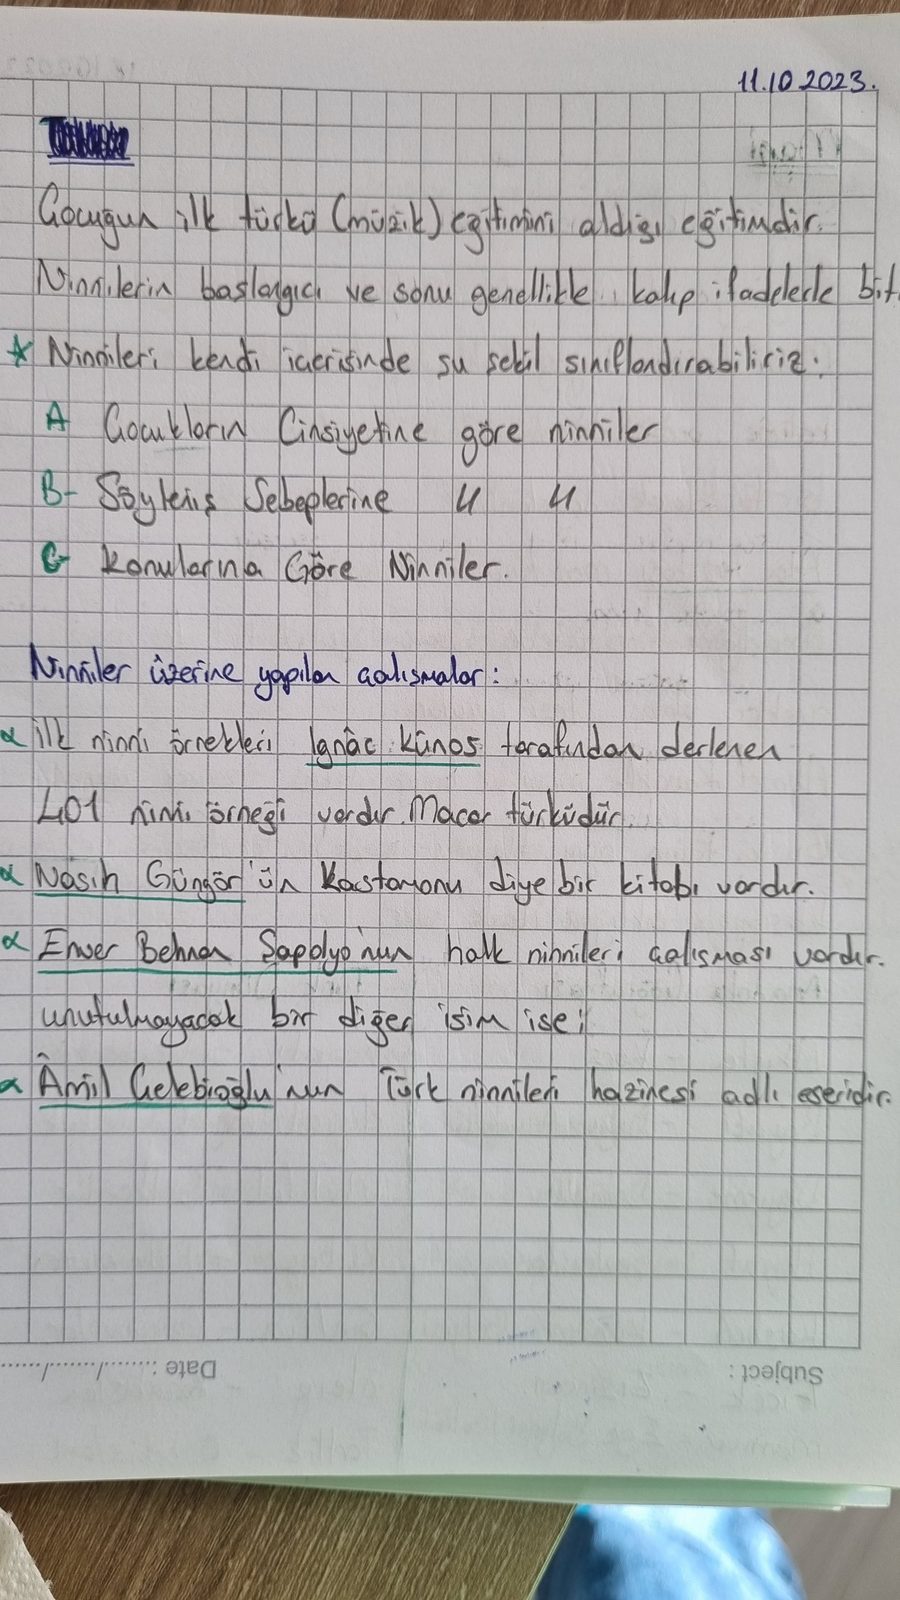 11.10.2023.
Çocuğun ilk türkü (müzik) eğitimini aldığı eğitimdir.
Ninnilerin baslangıcı ve sonu genellikle kalıp ifadelerle bit
* Ninnileri kendi içerisinde su sekil sınıflandırabiliriz:
A Çocukların Cinsiyetine göre ninniler
B- Söyleniş Sebeplerine " "
C- Konularına Göre Ninniler.
Ninniler üzerine yapılan çalışmalar:
α ilk ninni örnekleri Ignâc Kûnos tarafından derlenen
401 ninni örneği vardır. Macar türküdür.
α Nasih Güngör'ün Kastamonu diye bir kitabı vardır.
α Enver Behnan Sapolyo'nun halk ninnileri çalışması vardır.
unutulmayacak bir diğer isim ise;
α Âmil Çelebioğlu'nun Türk ninnileri hazinesi adlı eseridir.
Subject :
Date : ......./......./.......